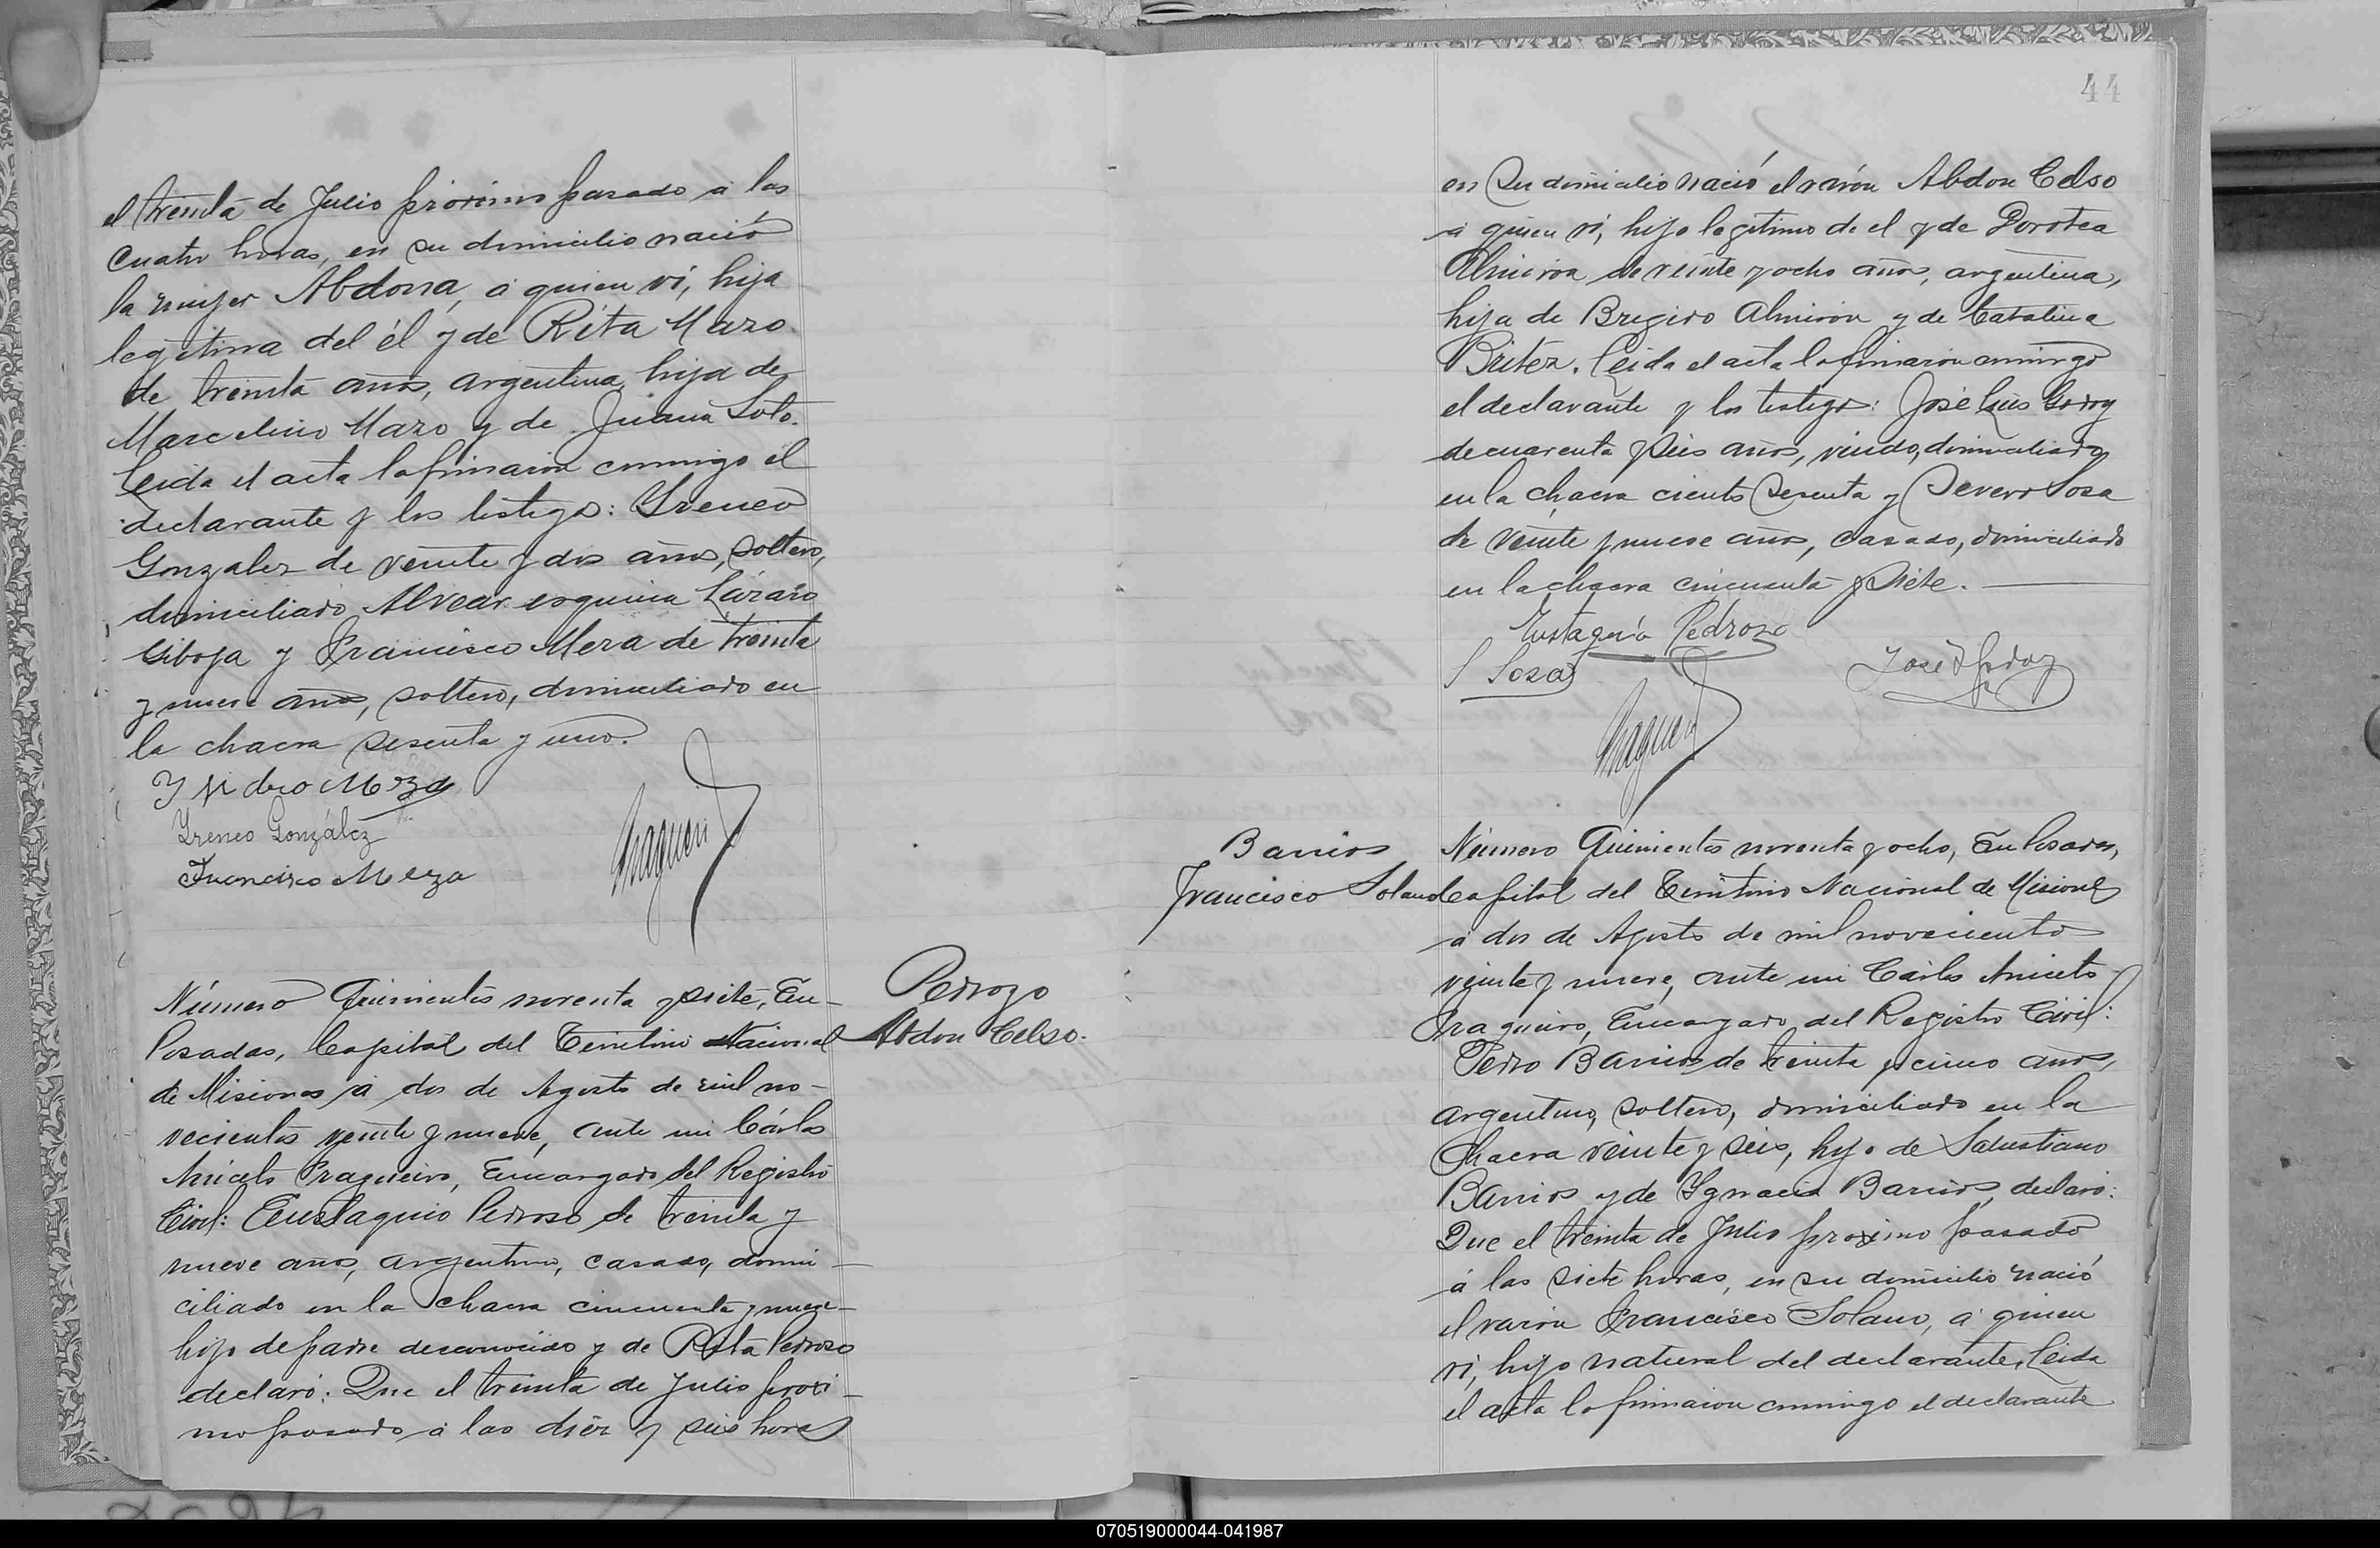 el treinta de Julio próximo pasado á las
cuatro horas, en su domicilio nació
la mujer Abdona, á quien ví, hija
legítima del él y de Rita Mazo
de treinta años, argentina, hija de
Marcelino Mazo y de Juana Soto.
Leida el acta la firmaron conmigo el
declarante y los testigos: Ireneo
Gonzalez de veinte y dos años, soltero,
domiciliado Alvear esquina Lázaro
Giboja y Francisco Meza de treinta
y nueve años, soltero, domiciliado en
la chacra sesenta y uno.
Ysidro Meza
Yreneo González
Francisco Meza
Número Quinientos noventa y siete, En
Posadas, Capital del Territorio Nacional
de Misiones á dos de Agosto de mil no-
vecientos veinte y nueve, ante mi Cárlos
Aniceto Fragueiro, Encargado del Registro
Civil: Eustaquio Pedrozo de treinta y
nueve años, argentino, casado, domi-
ciliado en la chacra cincuenta y nueve
hijo de padre desconocido y de Rita Pedrozo
declaró: Que el treinta de Julio próxi-
mo pasado á las diez y seis horas
Pedrozo
Abdon Celso.
44
en su domicilio nació el varón Abdon Celso
á quien ví, hijo legítimo de el y de Dorotea
Almiron de veinte y ocho años, argentina,
hija de Brigido Almiron y de Catalina
Britez. Leida el acta la firmaron conmigo
el declarante y los testigos: José Luis Godoy
de cuarenta y seis años, viudo, domiciliado
en la chacra ciento sesenta y Severo Sosa
de veinte y nueve años, casado, domiciliado
en la chacra cincuenta y siete.
Eustaquio Pedrozo
S Sosa
José L Godoy
Barrios
Francisco Solano
Número Quinientos noventa y ocho, En Posadas,
Capital del Territorio Nacional de Misiones
á dos de Agosto de mil novecientos
veinte y nueve, ante mi Cárlos Aniceto
Fragueiro, Encargado del Registro Civil:
Pedro Barrios de treinta y cinco años,
argentino, soltero, domiciliado en la
Chacra veinte y seis, hijo de Salustiano
Barrios y de Ygnacia Barrios, declaró:
Que el treinta de Julio próximo pasado
á las siete horas, en su domicilio nació
el varón Francisco Solano, á quien
ví, hijo natural del declarante. Leida
el acta la firmaron conmigo el declarante
070519000044-041987